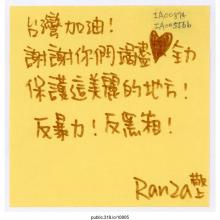 IA00374
IA005566
台灣加油！
謝謝你們竭盡全力
保護這美麗的地方！
反暴力！反黑箱！
Ranza 敬上
public.318.io/10905